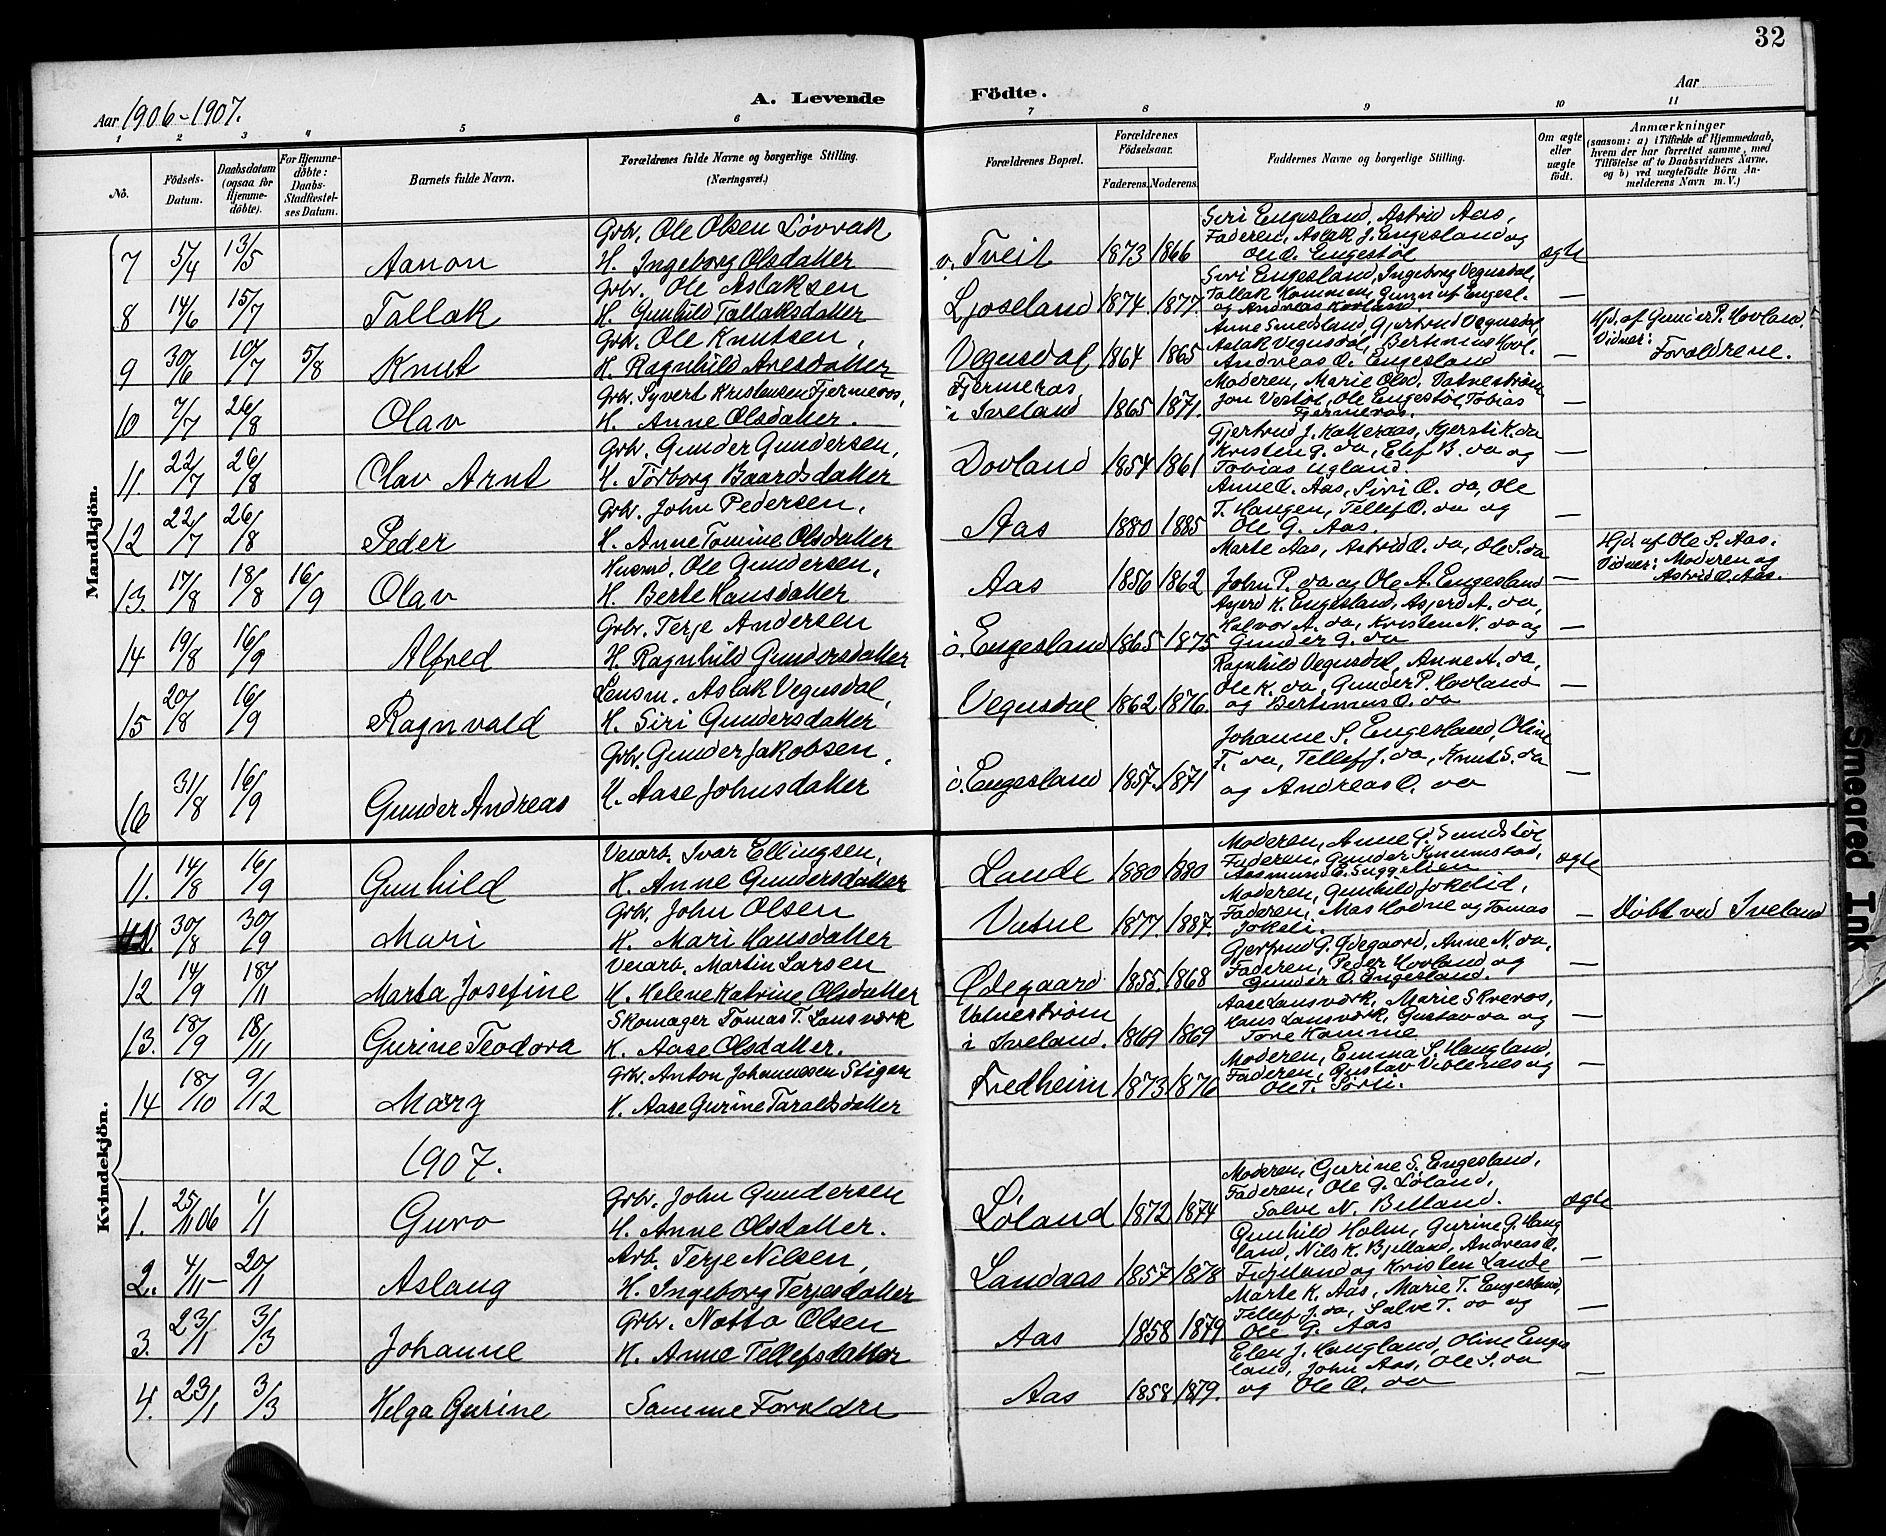 32
Aar 1906-1907.
A. Levende Födte.
Aar
1 2 3 4 5 6 7 8 9 10 11
No.
Födsels-Datum.
Daabsdatum (ogsaa for Hjemme-döbte).
For Hjemme-döbte: Daabs-Stadfæstel-ses Datum.
Barnets fulde Navn.
Forældrenes fulde Navne og borgerlige Stilling.
(Næringsvei.)
Forældrenes Bopæl.
Forældrenes Födselsaar.
Faderens. Moderens.
Faddernes Navne og borgerlige Stilling.
Om ægte eller uægte födt.
Anmærkninger
(saasom: a) i Tilfælde af Hjemmedaab, hvem der har forrettet samme, med Tilföielse af to Daabsvidners Navne, og b) ved uægtefödte Börn Anmelderens Navn m. V.)
Mandkjön.
7 5/4 13/5 Aanon Gbr. Ole Olsen Løvrak H. Ingeborg Olsdatter ø. Tveit 1873 1866 Siri Engesland, Astrid Aas, Faderen, Aslak J. Engesland og Ol. O. Engestøl ægte
8 14/6 15/7 Tallak Gbr. Ole Aslaksen H. Gunhild Tallaksdatter Ljoseland 1874 1877. Siri Engesland, Ingeborg Vegusdal, Tallak Kommen, Gunn af Engesl. og Andreas Hovland —
9 30/6 10/7 5/8 Knut Gbr. Ole Knutsen, H. Ragnhild Aresdatter Vegusdal 1864 1865 Anne Smedsland, Gjertrud Vegusdal, Aslak Vegusdal, Bertinius Hovl. Andreas O. Engesland — Hjd. af Gunder P. Hovland. Vidner: Forældrene.
10 7/7 26/8 Olav Gbr. Syvert Kristensen Fjermeros, H. Anne Olsdatter. Fjermeros i Iveland 1865 1871. Moderen, Marie Olsd. Vatnestrøm, Jon Vestøl, Ole Engestøl, Tobias Fjermeros. —
11. 22/7 26/8 Olav Arnt Gbr. Gunder Gundersen, H. Torborg Baardsdatter Dovland 1854 1861 Gjertrud J. Katteraas, Kjersti K. do Kristen G. do, Elef B. do og Tobias Ugland —
12 22/7 26/8 Peder Gbr. John Pedersen, H. Anne Tomine Olsdatter Aas 1880 1885 Anne O. Aas, Siri O. do, Ole T. Haugen, Tellef O. do og Ole G. Aas. —
13. 17/8 18/8 16/9 Olav Husmd. Ole Gundersen, H. Berte Hansdatter Aas 1856 1862 Marte Aas, Astrid O. do, Ole S. do John P. do og Ole A. Engesland — Hjd. af Ole S. Aas. Vidner: Moderen og Astrid O. Aas.
14 19/8 16/9 Alfred Gbr. Terje Andersen H. Ragnhild Gundersdatter ø. Engesland 1865 1875 Asjerd K. Engesland, Asjerd A. do, Halvor A. do, Kristen N. do og Gunder G. do —
15 20/8 16/9 Ragnvald Lensm. Aslak Vegusdal, H. Siri Gundersdatter Vegusdal 1862 1876. Ragnhild Vegusdal, Anne A. do, Ole K. do, Gunder P. Hovland og Bertinius O. do —
16 31/8 16/9 Gunder Andreas Gbr. Gunder Jakobsen, H. Aase Johnsdatter ø. Engesland 1857. 1871 Johanne S. Engesland, Oline T. do, Tellef J. do, Knut S. do og Andreas O. do —
Kvindekjön.
11. 14/8 16/9 Gunhild Veiarb. Ivar Ellingsen, H. Anne Gundersdatter Lande 1880 1880 Moderen, Anne G. Sundstøl Faderen, Gunder Aasmund E. ægte
30/8 30/9 Mari Gbr. John Olsen H. Mari Hansdatter Vatne 1877. 1887. Moderen, Gunhild Jokelid, Faderen, Mas Hodne og Tomas Jokeli. — Døbt ved Iveland
12 14/9 18/11 Marta Josefine Veiarb. Martin Larsen H. Helene Katrine Olsdatter Ødegaard 1855. 1868 Gjertrud G. Ødegaard, Anne N. do, Faderen, Peder Hovland og Gunder O. Engesland. —
13. 18/9 18/11 Gurine Teodora Skomager Tomas T. Lansværk H. Aase Olsdatter. Vatnestrøm i Iveland. 1869 1869 Aase Lansværk, Marie Skreros, Hans Lansværk, Gustav do og Tore Komme —
14 18/10 9/12 Marg Gbr. Anton Johannessen Stigen H. Aase Gurine Taraldsdatter Fredheim 1873 1876 Moderen, Emma S. Haugland, Faderen, Gustav og Ole T. Sørli. —
1907.
1. 25/11 06 1/1 Guro Gbr. John Gundersen H. Anne Olsdatter. Løland 1872 1874 Moderen, Gurine S. Engesland, Faderen, Ole G. Løland, Salve N. Belland. ægte
2. 4/11 — 20/1 Aslaug Arb. Terje Nilsen, H. Ingeborg Terjesdatter Landaas 1857 1878 Gunhild Holm, Gurine G. Haugland, Nils K. Bjelland, Andreas O. og Kristen Lande —
3. 23/1 3/3 Johanne Gbr. Notto Olsen H. Anne Tellefsdatter Aas 1858 1879 Marte K. Aas, Marie T. Engesland, Tellef J. do, Salve T. do og Ole G. Aas —
4. 23/1 3/3 Helga Gurine Samme Forældre Aas 1858 1879. Elen J. Haugland, Oline Engesland, John Aas, Ole S. do og Ole O. do —
Smeared Ink